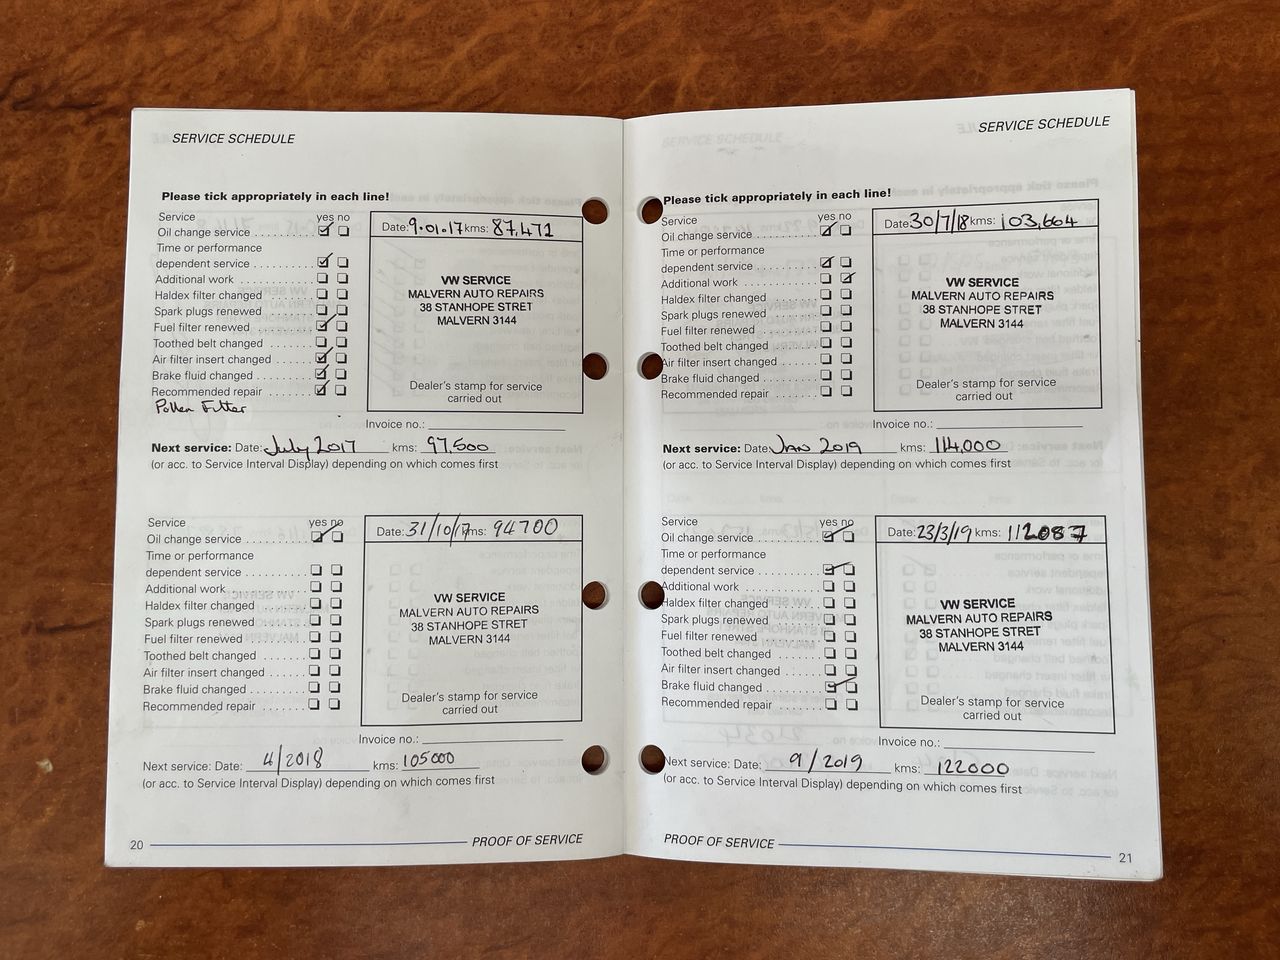 SERVICE SCHEDULE
Please tick appropriately in each line!
Service yes no
Oil change service
Time or performance
dependent service
Additional work
Haldex filter changed
Spark plugs renewed
Fuel filter renewed
Toothed belt changed
Air filter insert changed
Brake fluid changed
Recommended repair
Pollen Filter
Date: 9.01.17 kms: 87,471
VW SERVICE
MALVERN AUTO REPAIRS
38 STANHOPE STRET
MALVERN 3144
Dealer's stamp for service
carried out
Invoice no.:
Next service: Date: July 2017 kms: 97,500
(or acc. to Service Interval Display) depending on which comes first
Service yes no
Oil change service
Time or performance
dependent service
Additional work
Haldex filter changed
Spark plugs renewed
Fuel filter renewed
Toothed belt changed
Air filter insert changed
Brake fluid changed
Recommended repair
Date: 31/10/17 kms: 94700
VW SERVICE
MALVERN AUTO REPAIRS
38 STANHOPE STRET
MALVERN 3144
Dealer's stamp for service
carried out
Invoice no.:
Next service: Date: 4/2018 kms: 105000
(or acc. to Service Interval Display) depending on which comes first
20 PROOF OF SERVICE
SERVICE SCHEDULE
Please tick appropriately in each line!
Service yes no
Oil change service
Time or performance
dependent service
Additional work
Haldex filter changed
Spark plugs renewed
Fuel filter renewed
Toothed belt changed
Air filter insert changed
Brake fluid changed
Recommended repair
Date: 30/7/18 kms: 103,664
VW SERVICE
MALVERN AUTO REPAIRS
38 STANHOPE STRET
MALVERN 3144
Dealer's stamp for service
carried out
Invoice no.:
Next service: Date: JAN 2019 kms: 114,000
(or acc. to Service Interval Display) depending on which comes first
Service yes no
Oil change service
Time or performance
dependent service
Additional work
Haldex filter changed
Spark plugs renewed
Fuel filter renewed
Toothed belt changed
Air filter insert changed
Brake fluid changed
Recommended repair
Date: 23/3/19 kms: 112087
VW SERVICE
MALVERN AUTO REPAIRS
38 STANHOPE STRET
MALVERN 3144
Dealer's stamp for service
carried out
Invoice no.:
Next service: Date: 9/2019 kms: 122000
(or acc. to Service Interval Display) depending on which comes first
PROOF OF SERVICE 21